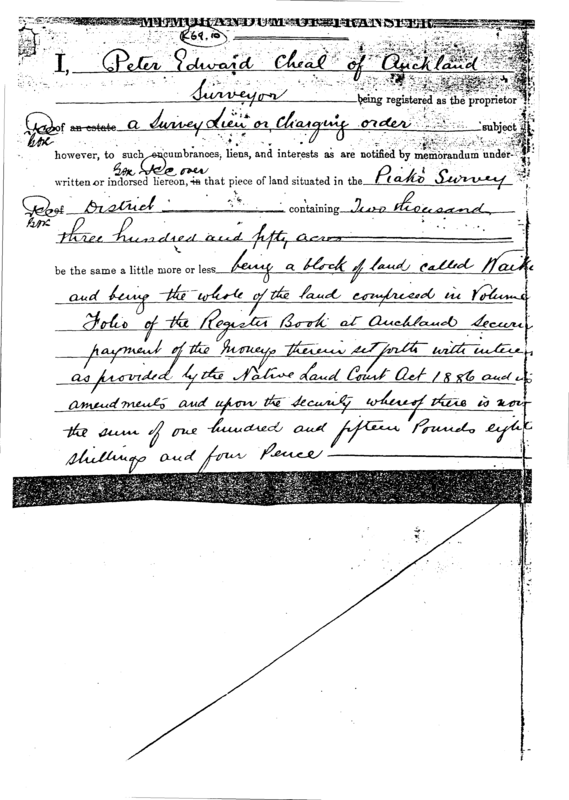 MEMORANDUM OF TRANSFER
K69.10
I, Peter Edward Cheal of Auckland
Surveyor being registered as the proprietor
of an estate a Survey Lien or Charging order subject
however, to such encumbrances, liens, and interests as are notified by memorandum under-
over
written or indorsed hereon, in that piece of land situated in the Piako Survey
of District containing Two thousand
three hundred and fifty acres
be the same a little more or less being a block of land called
and being the whole of the land comprised in Volume
Folio of the Register Book at Auckland
payment of the Moneys therein set forth with
as provided by the Native Land Court Act 1886 and
amendments and upon the security whereof there is now
the sum of one hundred and fifteen Pounds eight
shillings and four Pence